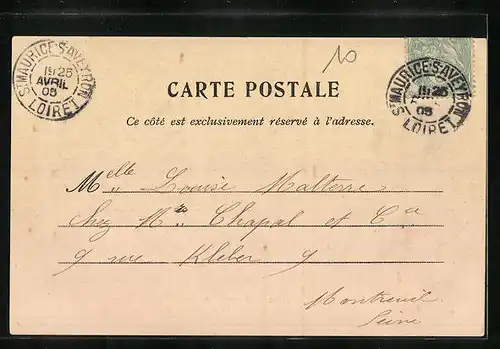 10
ST MAURICE-S-AVEYRON
19 25
AVRIL
05
LOIRET
ST MAURICE-S-AVEYRON
19 25
05
LOIRET
CARTE POSTALE
Ce côté est exclusivement réservé à l'adresse.
Melle Louise Malterre
chez Mrs Chapal et Cie
9 rue Kleber 9
Montreuil
Seine